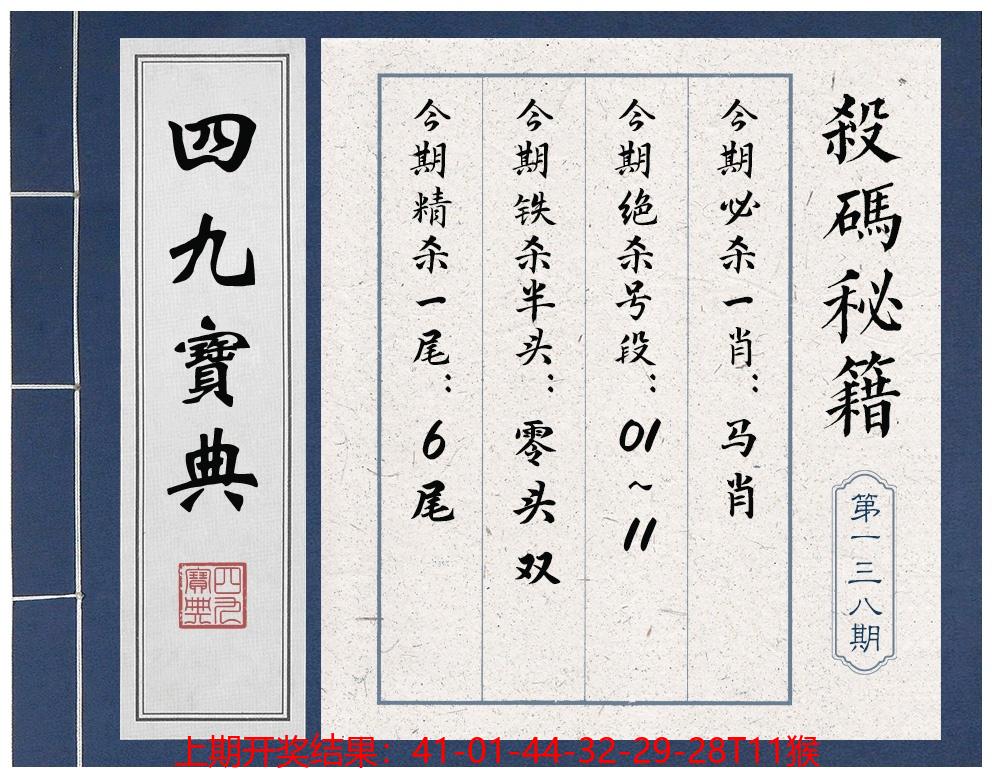 殺碼秘籍
第一三八期
今期必杀一肖：马肖
今期绝杀号段：01~11
今期铁杀半头：零头双
今期精杀一尾：6尾
四九寶典
四九寶典
上期开奖结果：41-01-44-32-29-28T11猴